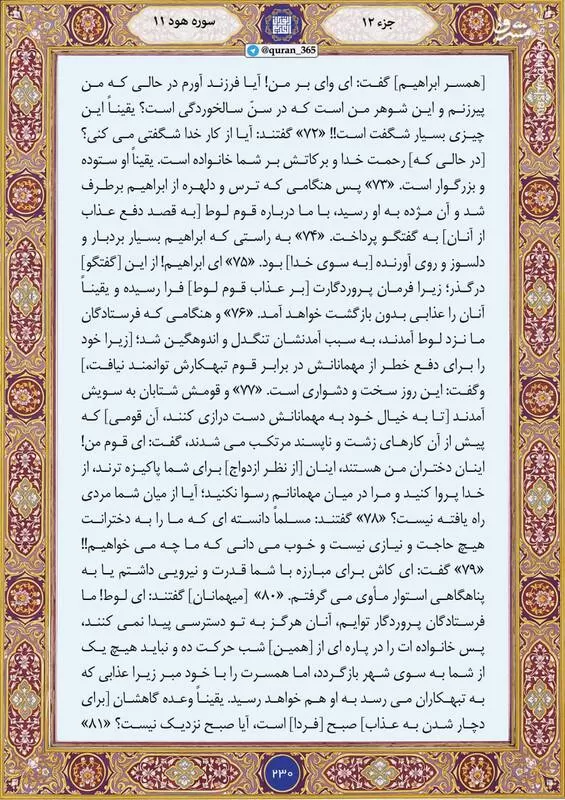 جزء ۱۲
سوره هود ۱۱
مشرق
@quran_365
[همسر ابراهیم] گفت: ای وای بر من! آیا فرزند آورم در حالی که من
پیرزنم و این شوهر من است که در سنّ سالخوردگی است؟ یقیناً این
چیزی بسیار شگفت است!! «۷۲» گفتند: آیا از کار خدا شگفتی می کنی؟
[در حالی که] رحمت خدا و برکاتش بر شما خانواده است. یقیناً او ستوده
و بزرگوار است. «۷۳» پس هنگامی که ترس و دلهره از ابراهیم برطرف
شد و آن مژده به او رسید، با ما درباره قوم لوط [به قصد دفع عذاب
از آنان] به گفتگو پرداخت. «۷۴» به راستی که ابراهیم بسیار بردبار و
دلسوز و روی آورنده [به سوی خدا] بود. «۷۵» ای ابراهیم! از این [گفتگو]
درگذر؛ زیرا فرمان پروردگارت [بر عذاب قوم لوط] فرا رسیده و یقیناً
آنان را عذابی بدون بازگشت خواهد آمد. «۷۶» و هنگامی که فرستادگان
ما نزد لوط آمدند، به سبب آمدنشان تنگدل و اندوهگین شد؛ [زیرا خود
را برای دفع خطر از مهمانانش در برابر قوم تبهکارش توانمند نیافت،]
وگفت: این روز سخت و دشواری است. «۷۷» و قومش شتابان به سویش
آمدند [تا به خیال خود به مهمانانش دست درازی کنند، آن قومی] که
پیش از آن کارهای زشت و ناپسند مرتکب می شدند، گفت: ای قوم من!
اینان دختران من هستند، اینان [از نظر ازدواج] برای شما پاکیزه ترند، از
خدا پروا کنید و مرا در میان مهمانانم رسوا نکنید؛ آیا از میان شما مردی
راه یافته نیست؟ «۷۸» گفتند: مسلماً دانسته ای که ما را به دخترانت
هیچ حاجت و نیازی نیست و خوب می دانی که ما چه می خواهیم!!
«۷۹» گفت: ای کاش برای مبارزه با شما قدرت و نیرویی داشتم یا به
پناهگاهی استوار مأوی می گرفتم. «۸۰» [میهمانان] گفتند: ای لوط! ما
فرستادگان پروردگار توایم، آنان هرگز به تو دسترسی پیدا نمی کنند،
پس خانواده ات را در پاره ای از [همین] شب حرکت ده و نباید هیچ یک
از شما به سوی شهر بازگردد، اما همسرت را با خود مبر زیرا عذابی که
به تبهکاران می رسد به او هم خواهد رسید. یقیناً وعده گاهشان [برای
دچار شدن به عذاب] صبح [فردا] است، آیا صبح نزدیک نیست؟ «۸۱»
۲۳۰